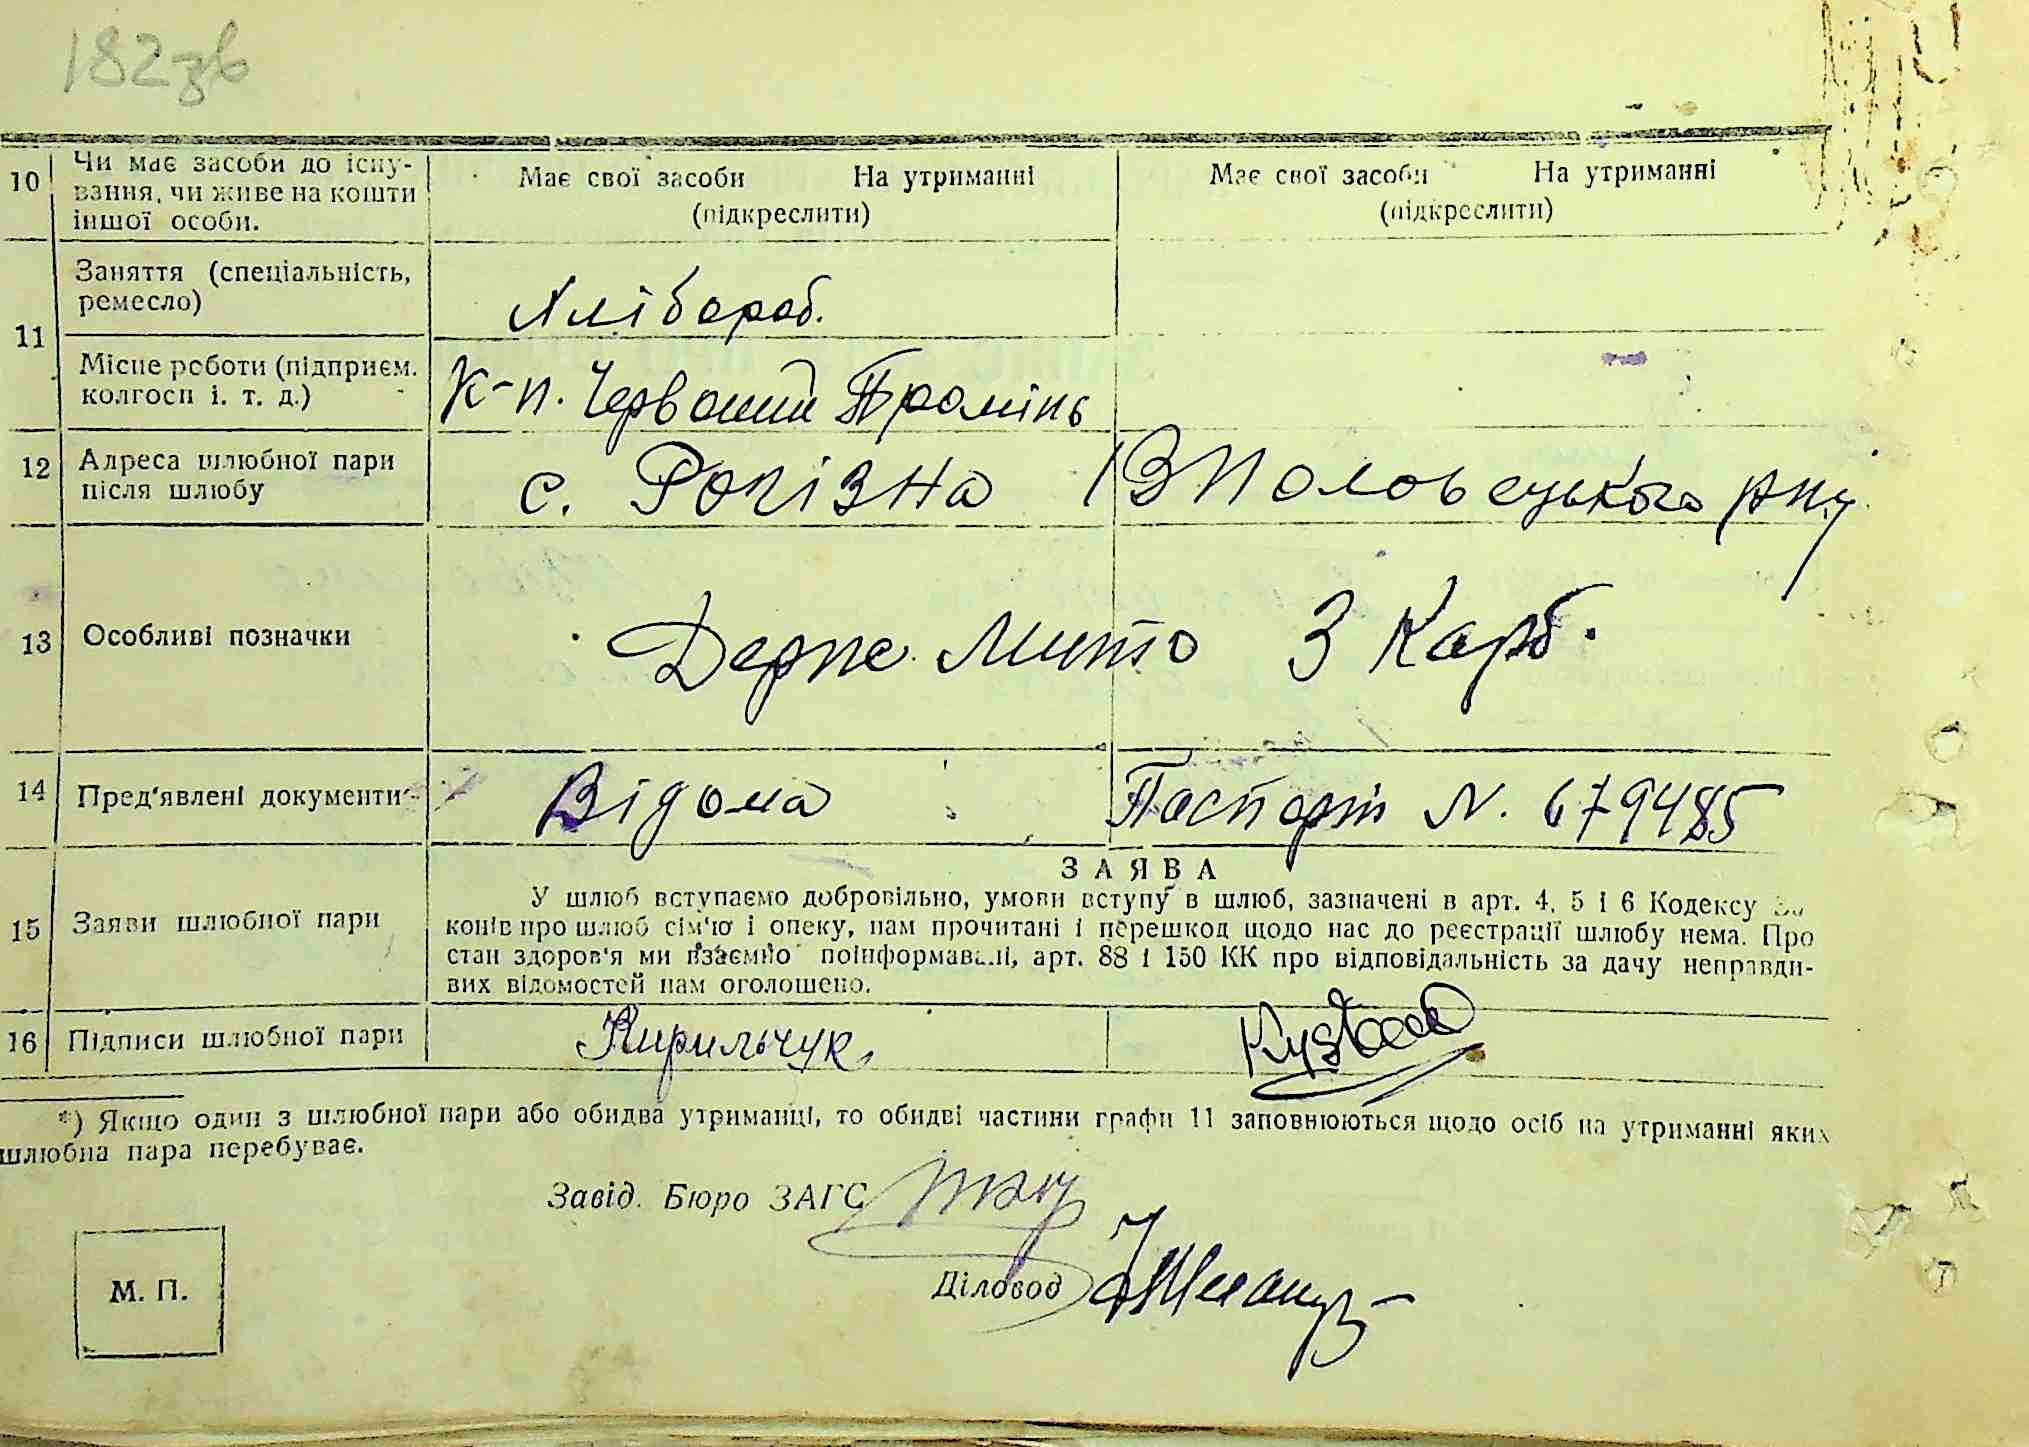 182зв
10 Чи має засоби до існу-
вання, чи живе на кошти
іншої особи.
Має свої засоби На утриманні
(підкреслити)
Має свої засоби На утриманні
(підкреслити)
11
Заняття (спеціальність,
ремесло)
Хлібороб.
Місце роботи (підприєм.
колгосп і. т. д.)
К-п. Червоний Промінь
12 Адреса шлюбної пари
після шлюбу
с. Рогізна
Половецького р-ну
13 Особливі позначки
Держ. Мито 3 Карб.
14 Пред'явлені документи
Відома
Паспорт N. 679485
15 Заяви шлюбної пари
ЗАЯВА
У шлюб вступаємо добровільно, умови вступу в шлюб, зазначені в арт. 4, 5 і 6 Кодексу За
конів про шлюб сім'ю і опеку, нам прочитані і перешкод щодо нас до реєстрації шлюбу нема. Про
стан здоров'я ми взаємно поінформавалі, арт. 88 і 150 КК про відповідальність за дачу неправди-
вих відомостей нам оголошено.
16 Підписи шлюбної пари
Кирильчук
*) Якщо один з шлюбної пари або обидва утриманці, то обидві частини графи 11 заповнюються щодо осіб на утриманні яких
шлюбна пара перебуває.
Завід. Бюро ЗАГС
Діловод
М. П.